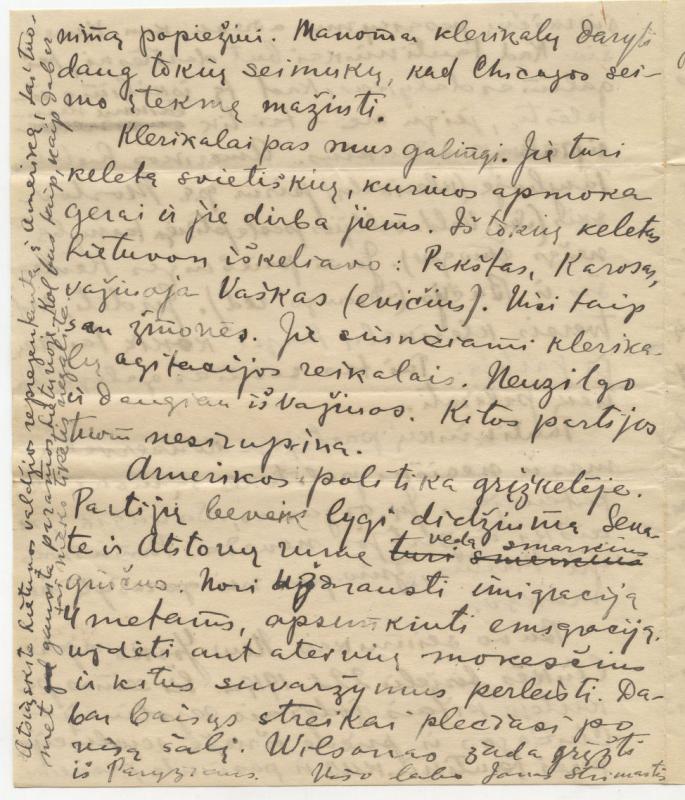 nimą popiežini. Manoma klerikalų daryti
daug tokių seimukų, kad Chicagos sei-
mo įtekmę mažinti.
Klerikalai pas mus galingi. Jie turi
keletą svietiškių, kuriuos apmoka
gerai ir jie dirba jiems. Iš tokių keletas
Lietuvon iškeliavo: Pakštas, Karosas,
važiuoja Vaškas (evičius). Visi taip
sau žmonės. Jie siunčiami klerika-
lų agitacijos reikalais. Neuzilgo
ir daugiau išvažiuos. Kitos partijos
tuom nesirupina.
Amerikos politika gryžkelėje.
Partijų beveik lygi didžiuma Sena-
te ir Atstovų rume veda smarkius
ginčus. Nori uždrausti imigraciją
4 metams, apsunkinti emigraciją,
uždėti ant ateivių mokesčius
ir kitus suvaržymus perleisti. Da-
bar baisųs streikai plečiasi po
visą šalį. Wilsonas žada gryžti
iš Paryžiaus. Viso labo Jonas
Atsiųskite Lietuvos valdžios reprezentantą į Ameriką, tas tuo-
met gausite paramos Lietuvoje. Kol bus taip, kaip dabar
tai mažko tikėtis negalite.